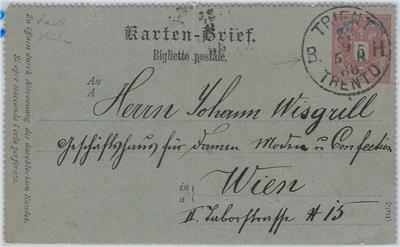 Karten-Brief.
Biglietto postale.
TRIENT
B. H.
TRENTO
5
An
A
Herrn Johann Wisgrill
Geschäftshaus für Damen Moden u Confection
in
a
Wien
II. Taborstrasse # 15
Zu öffnen durch Abtrennung des durchlochten Randes.
Si apre staccando l'orlo perforato.
(Ital.)